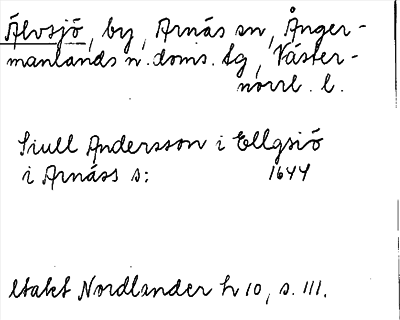 Älvsjö, by, Arnäs sn, Ånger-
manlands n. doms. sg, Väster-
norrl. l.
Siull Andersson i Ellgsiö
i Arnäss s: 1644
Nordlander h 10, s. 111.